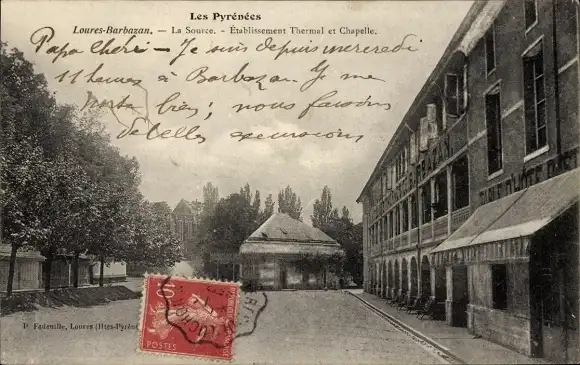 Les Pyrénées
Loures-Barbazan. — La Source. - Établissement Thermal et Chapelle.
Papa chéri — Je suis depuis mercredi
11 heures à Barbazan. Je me
porte bien; nous faisons
de belles excursions
BARBAZAN
P. Fadeuille, Loures (Htes-Pyrén
10